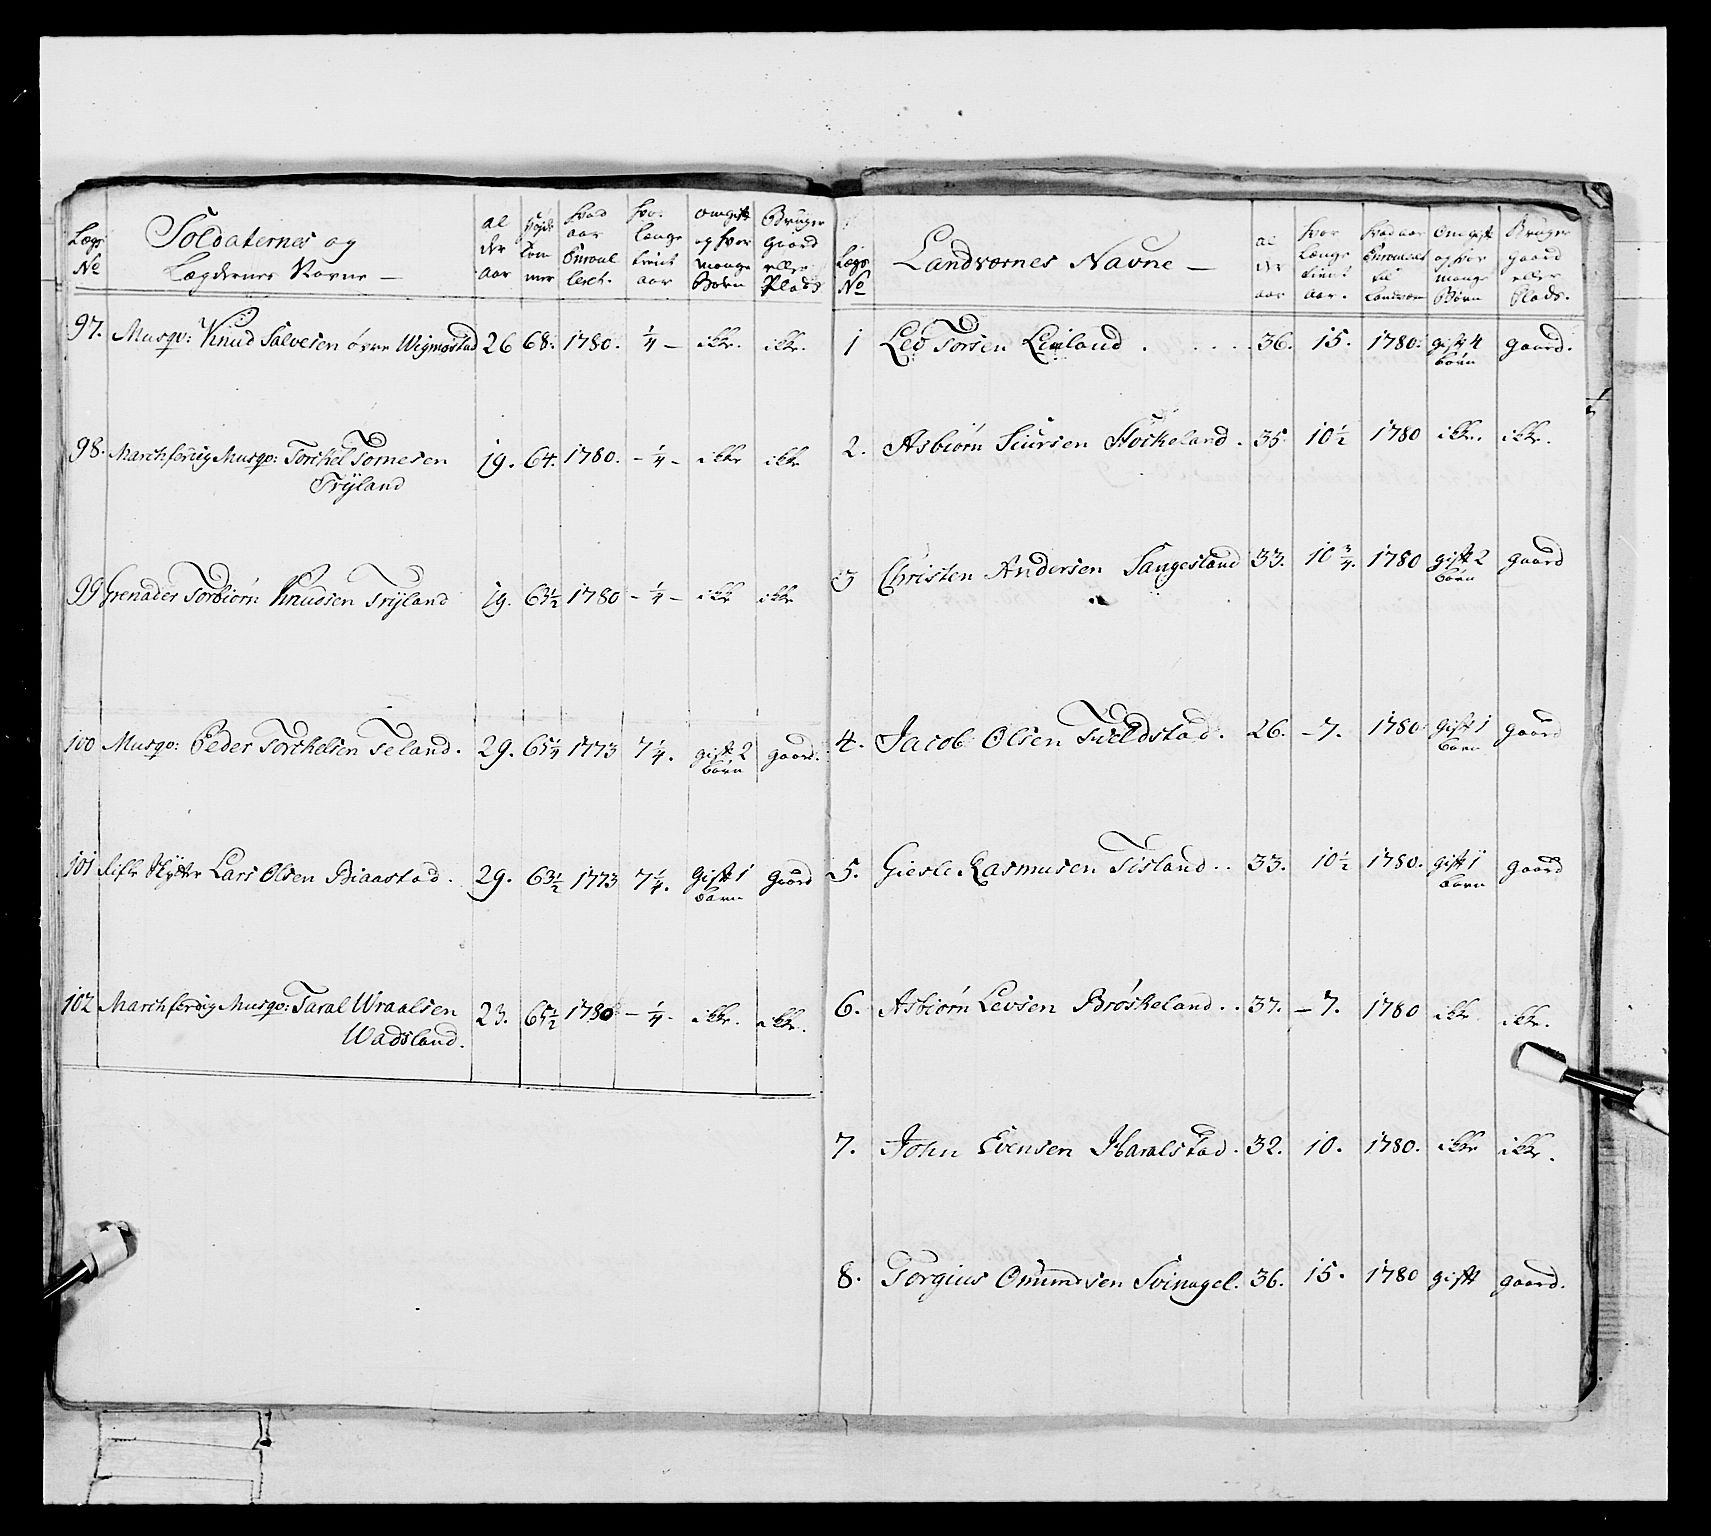 Lægs No | Soldaternes og Lægdernes Navne — | al der aar | høyde tom mer | hvad aar Enroul leret. | hvor længe tient aar | om gift og hvor mange Børn | Bruger Gaard eller Plads
97. Musqv: Knud Salvesen øvre Wigmostad 26 68. 1780. ¼ – ikke. ikke.
98. Marchferdig Musqv: Torchel Tomesen 19. 64. 1780. – ¼ – ikke ikke
Trÿland
99 Grenader Torbiørn Knudsen Trÿland 19. 63½ 1780 – ¼ – ikke ikke
100 Musqv: Peder Torchelsen Teland. 29. 65¼ 1773 7¼. gift 2 gaard.
børn
101 Rifle Skÿtter Lars Olsen Biaastad. 29. 63½ 1773 7¼. Gift 1 gaard
barn
102 Marchferdig Musqv: Taral Wraalsen 23. 65½ 1780 – ¼ – ikke. ikke.
Wadsland.
Lægs No | Landværnes Navne — | al der aar | hvor længe tient aar. | hvad aar Enroulert til Landværn | Om gift og hvor mange Børn | Bruger gaard eller Plads.
1 Leo Torsen Leland . . . . 36. 15. 1780. gift 4 gaard.
børn
2. Asbiørn Siursen Høskeland. 35. 10½ 1780 ikke. ikke.
3 Christen Andersen Sangesland 33. 10¾. 1780 gift 2 gaard
børn
4. Jacob Olsen Tveldstad. 26. – 7. 1780. gift 1 gaard
barn
5. Giesle Rasmusen Tisland. . 33. 10½ 1780. gift 1 gaard
barn
6. Asbiørn Levsen Brøskeland. . 37. – 7. 1780 ikke ikke.
7. John Evensen Haralstad. 32. 10. 1780. ikke ikke.
8. Torgius Omundsen Svinagel. 36. 15. 1780 gift gaard.